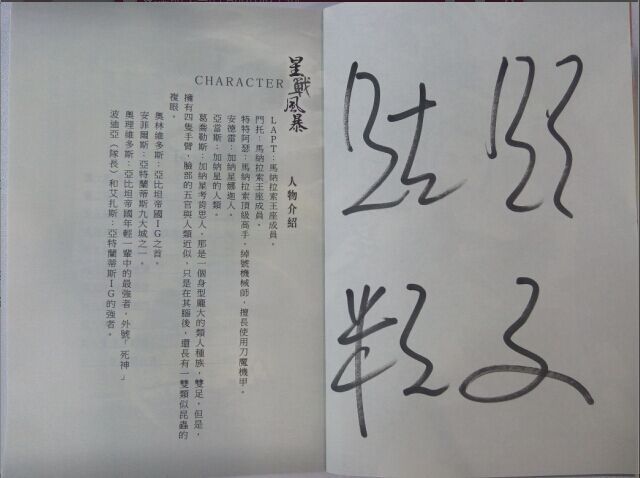 星戰風暴
CHARACTER
人物介紹
LAPT：馬納拉索王座成員。
門托：馬納拉索王座成員。
特特阿瑟：馬納拉索頂級高手，綽號機械師，擅長使用刀魔機甲。
安德雷：加納星娜迦人。
亞當斯：加納星的人類。
葛喬勒斯：加納星考肯思人，那是一個身型龐大的類人種族，雙足，但是，
擁有四隻手臂，臉部的五官與人類近似，只是在其腦後，還長有一雙類似昆蟲的
複眼。
奧林維多斯：亞比坦帝國IG之首。
安菲爾斯：亞特蘭蒂斯九大城之一。
奧理維多斯：亞比坦帝國年輕一輩中的最強者，外號「死神」
波迪亞（隊長）和艾扎斯：亞特蘭蒂斯IG的強者。